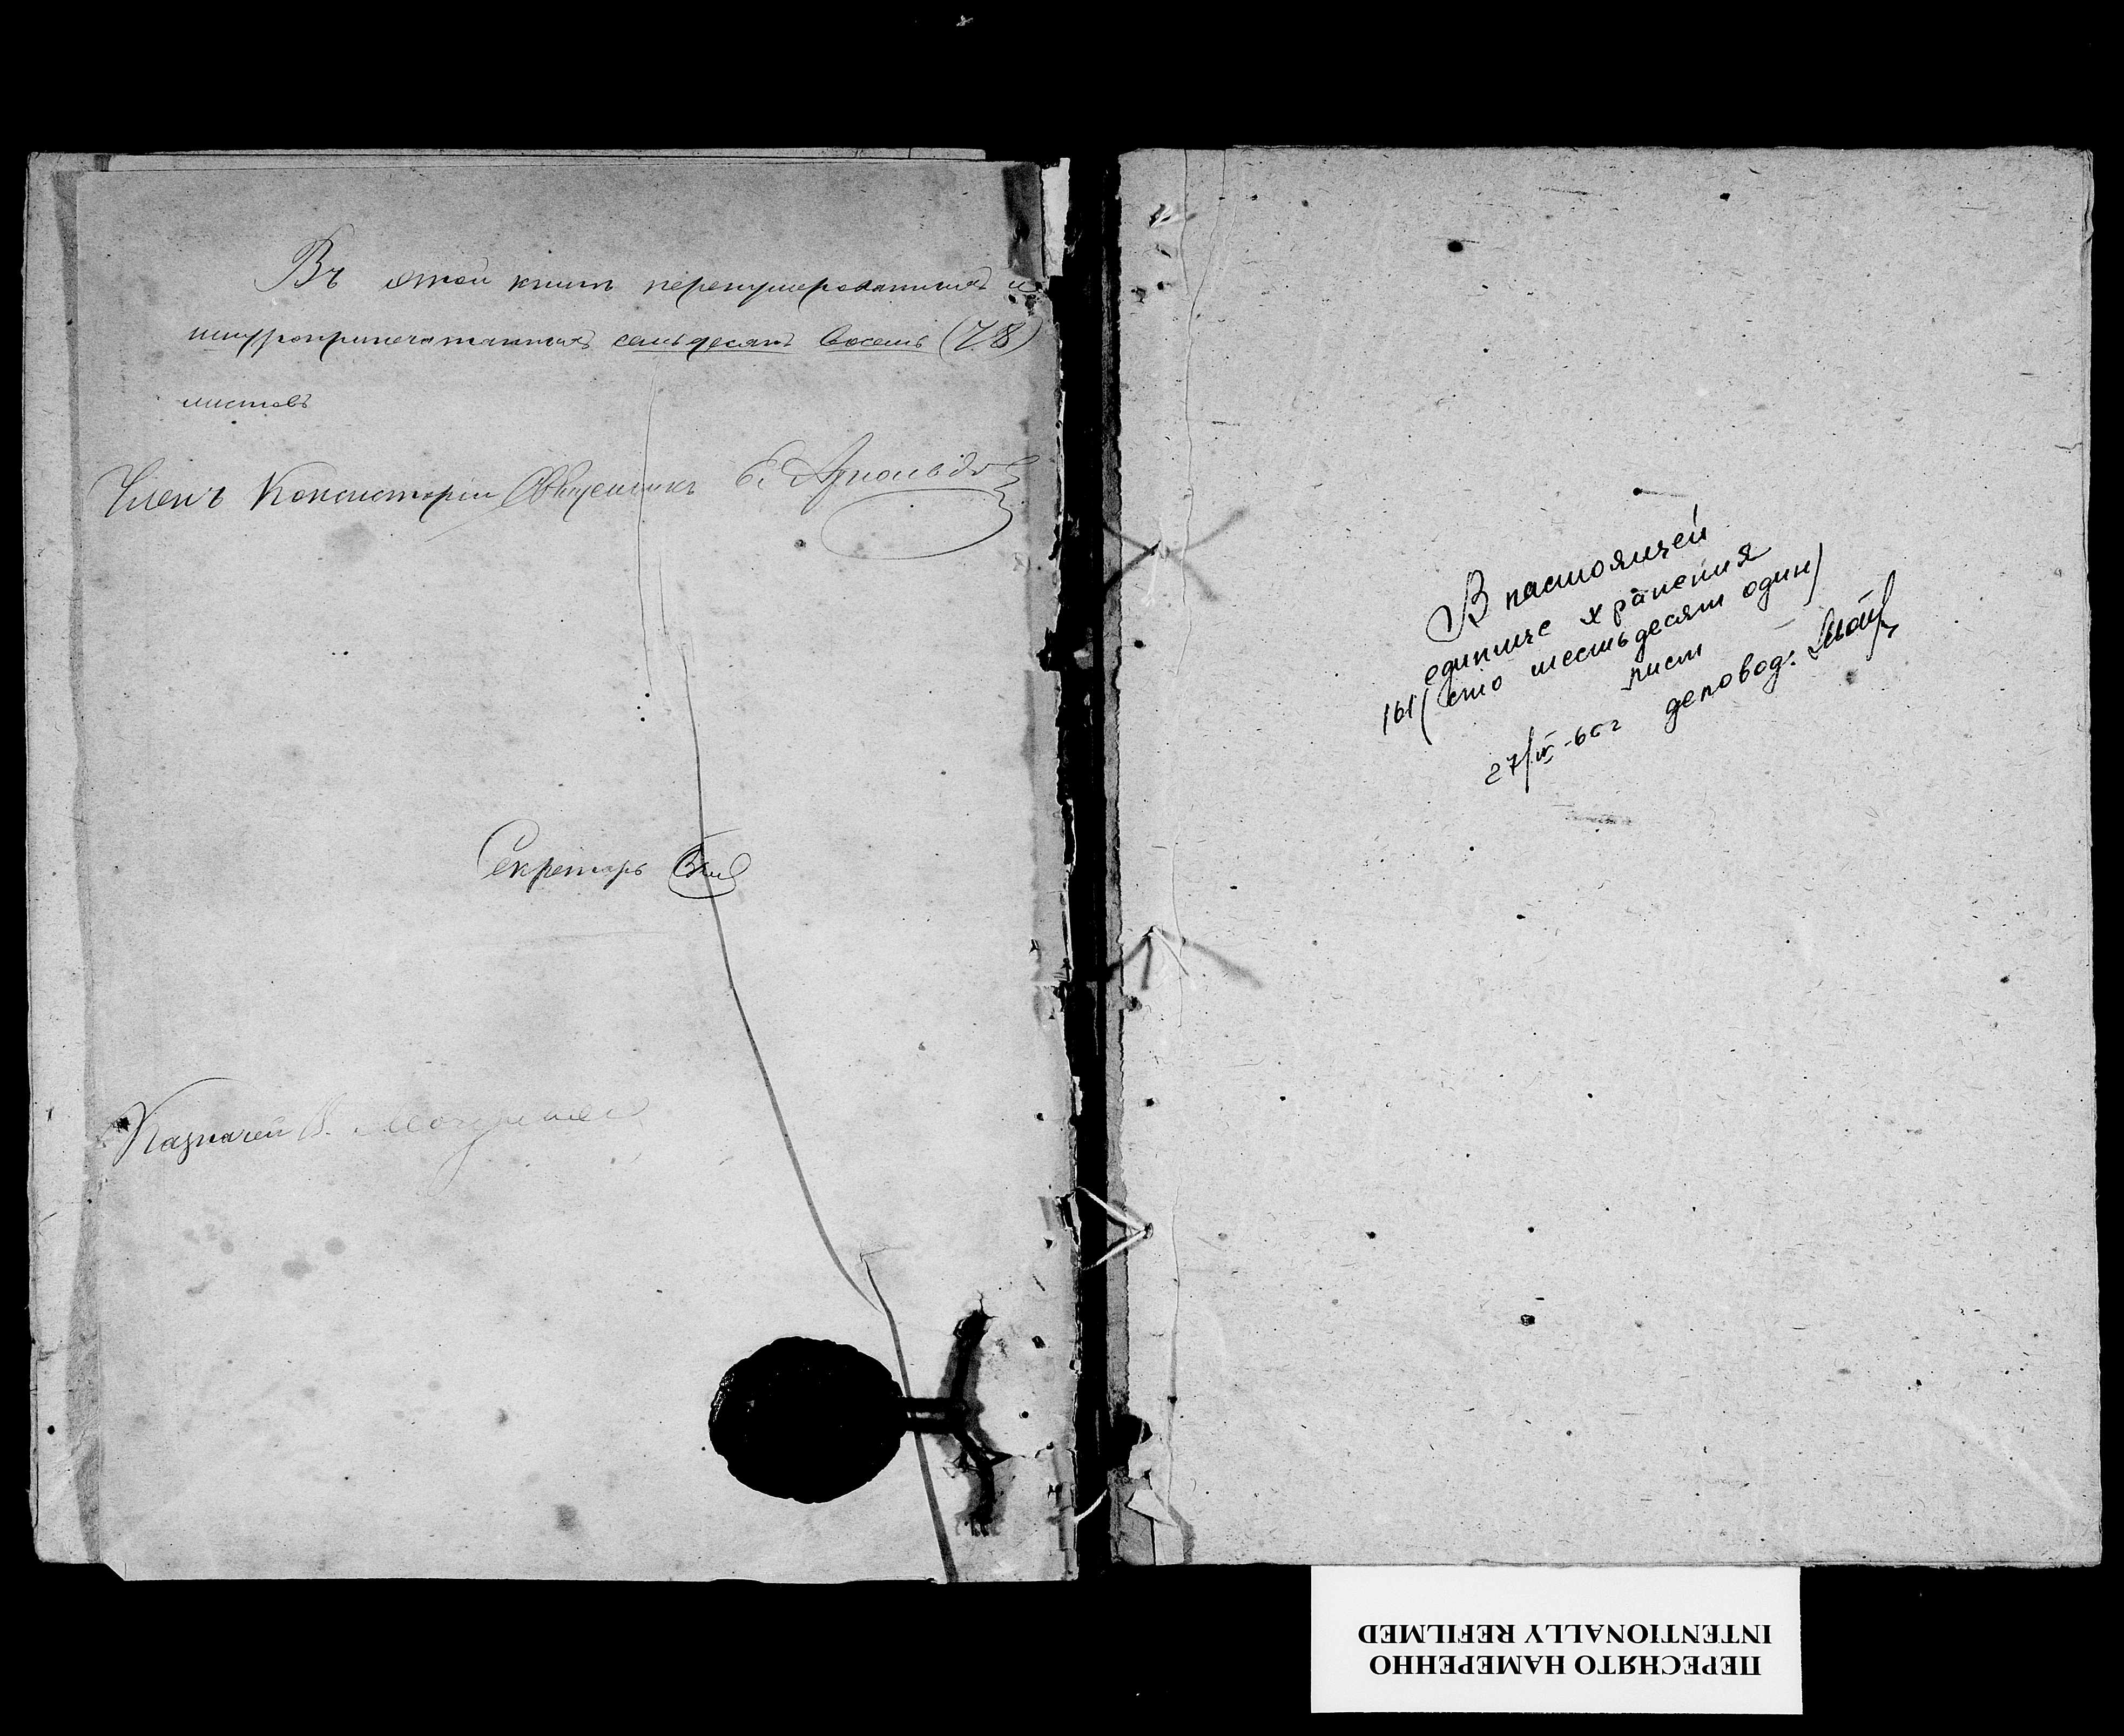 Въ этой книгѣ перенумерованныхъ и
шнуроприпечатанныхъ семьдесятъ восемь (78)
листовъ
Членъ Консисторіи Священникъ Е. Арнольдовъ
Секретарь
Казначей В.
В настоящей
единице хранения
161 (сто шестьдесят один)
лист
27/IV-66г деловод:
ПЕРЕСНЯТО НАМЕРЕННО
INTENTIONALLY REFILMED